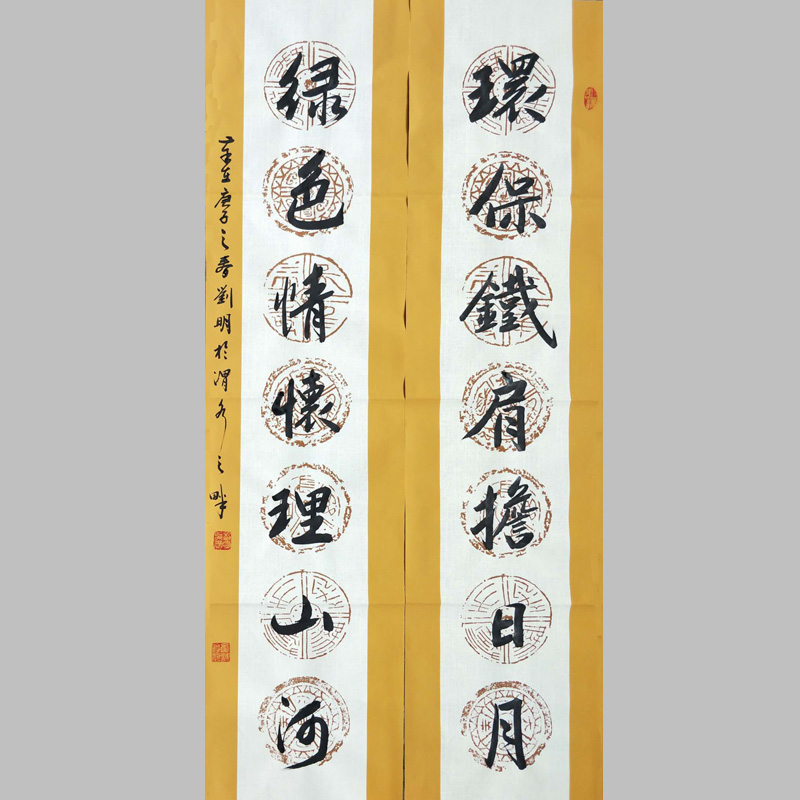 環保鐵肩擔日月
绿色情懷理山河
歲在庚子之春劉明於渭水之畔